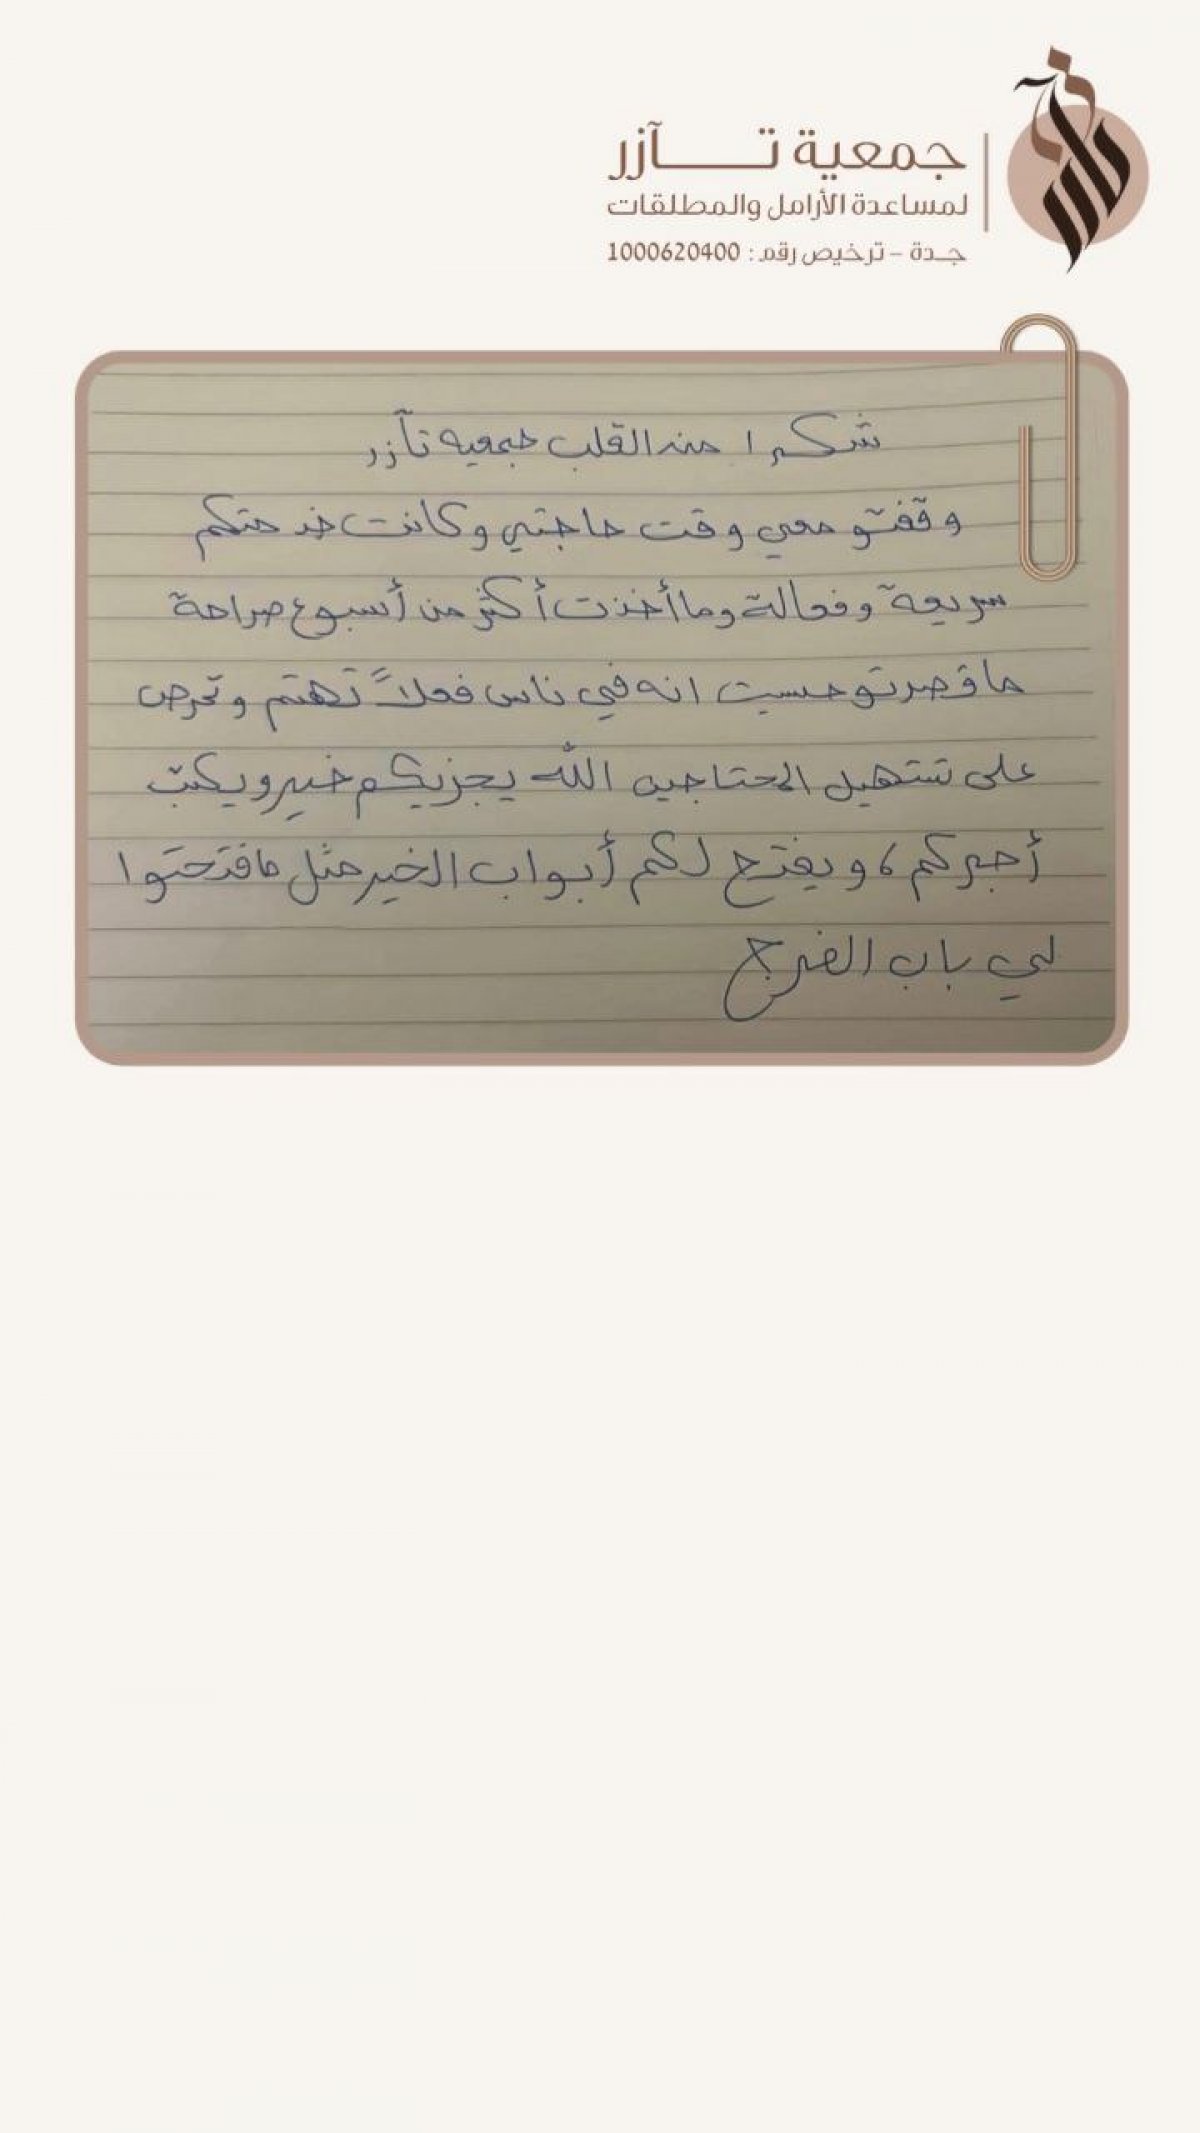 جمعية تآزر
لمساعدة الأرامل والمطلقات
جدة – ترخيص رقم : 1000620400
شكرا من القلب جمعيه تآزر
وقفتو معي وقت حاجتي وكانت خدمتكم
سريعة وفعالة وما أخذت أكثر من أسبوع صراحة
ماقصرتو حسيت انه في ناس فعلاً تهتم وتحرص
على تستهيل المحتاجين الله يجزيكم خير ويكتب
أجركم، ويفتح لكم أبواب الخير مثل مافتحتوا
لي باب الفرج